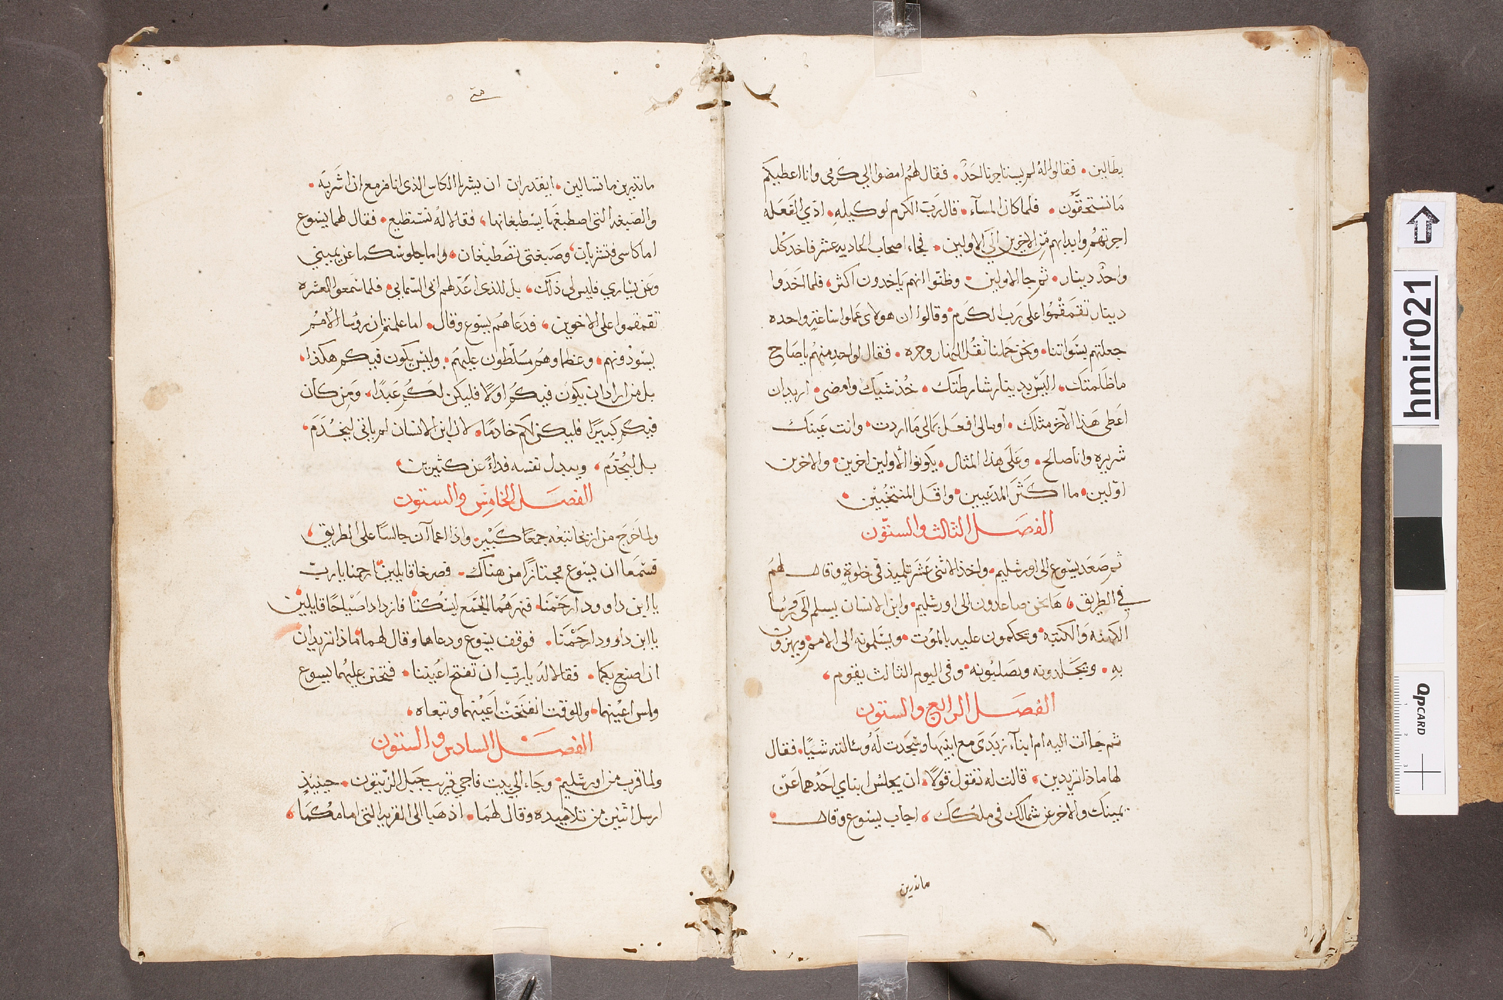 بطالين. فقالوا له لم يستاجرنا احد. فقال لهم امضوا الي كرمي وانا اعطيكم
ما تستحقون. فلما كان المسآء. قال رب الكرم لوكيله. ادع الفعله
اجرتهم وابدا بهم من الاخرين الي الاولين. فجاء اصحاب الحاديه عشر فاخد كل
واحد دينار. ثم جا الاولين. وظنوا انهم ياخدون اكثر. فلما اخدوا
دينار تقمقموا على رب الكرم وقالوا ان هولاى عملوا ساعة واحده
جعلتهم بسواتنا. ونحن حملنا ثقل النهار وحره. فقال لواحد منهم ياصاح
ما ظلمتك. اليس بدينار شارطتك. خد شيك وامضى. اريد ان
اعطى هذا الآخر مثلك. او مالى افعل بمالى ما اردت. وانت عينك
شريره وانا صالح. وعلى هذا المثال. يكونوا الاولين اخرين. والاخرين
اولين. ما اكثر المدعيين. واقل المنتخبين.
الفصل الثالث والستون
ثم صعد يسوع الى اورشليم. واخذ الاثنى عشر تلميذ في خلوة وقال لهم
في الطريق. ها نحن صاعدون الى اورشليم. وابن الانسان يسلم الى روسا
الكهنه والكتبه. ويحكمون عليه بالموت. ويسلمونه الى الامم ويهزون
به. ويجلدونه ويصلبونه. وفي اليوم الثالث يقوم.
الفصل الرابع والستون
ثم جاأت اليه ام ابناء زبدى مع ابنيها وسجدت له وسالته شيا. فقال
لها ماذا تريدين. قالت له تقول قولا. ان يجلس ابناي احدهما عن
يمينك والاخر عن شمالك في ملكك. اجاب يسوع وقال
ماتدرين
ماتدرين ما تسالين. ايقدرات ان يشربا الكاس الذى انا مزمع ان اشربه.
والصبغه التى اصطبغها يصطبغانها. فقالا له نستطيع. فقال لهما يسوع
اما كاسى فتشربان وصبغتى تصطبغان. واما جلوسكما عن يميني
وعن يساري فليس لى ذلك. بل للذى اعد لهم ابى السماي. فلما سمعوا العشره
تقمقموا على الاخوين. فدعاهم يسوع وقال. اما علمتم ان روسا الامم
يسودونهم. وعظماوهم مسلطون عليهم. وليس يكون فيكم هكذا.
بل من اراد ان يكون فيكم اولا فليكن لكم عبدا. ومن كان
فيكم كبيرا فليكن لكم خادما. لان ابن الانسان لم ياتى ليخدم
بل ليخدم. ويبدل نفسه فداء عن كثيرين
الفصل الخامس والستون
ولما خرج من اريحا تبعه جمعا كبير. واذا اعماآن جالسا على الطريق.
فسمعا ان يسوع مجتازا من هناك. فصرخا قايلين ارحمنا يارب
يا ابن داوود ارحمنا. فنهرهما الجمع ليسكتا فازدادا صياحا قايلين
يا ابن داوود ارحمنا. فوقف يسوع ودعاها وقال لهما ماذا تريدان
ان اصنع بكما. فقالا له يارب ان تفتح اعيننا. فتحنن عليهما يسوع
ولمس اعينهما. وللوقت انفتحت اعينهما وتبعاه.
الفصل السادس والستون
ولما قرب من اورشليم. وجاء الي بيت فاجي قرب جبل الزيتون. حينيذ
ارسل اثنين من تلاميده وقال لهما. اذهبا الى القريه التى امامكما
hmir021
QPCARD